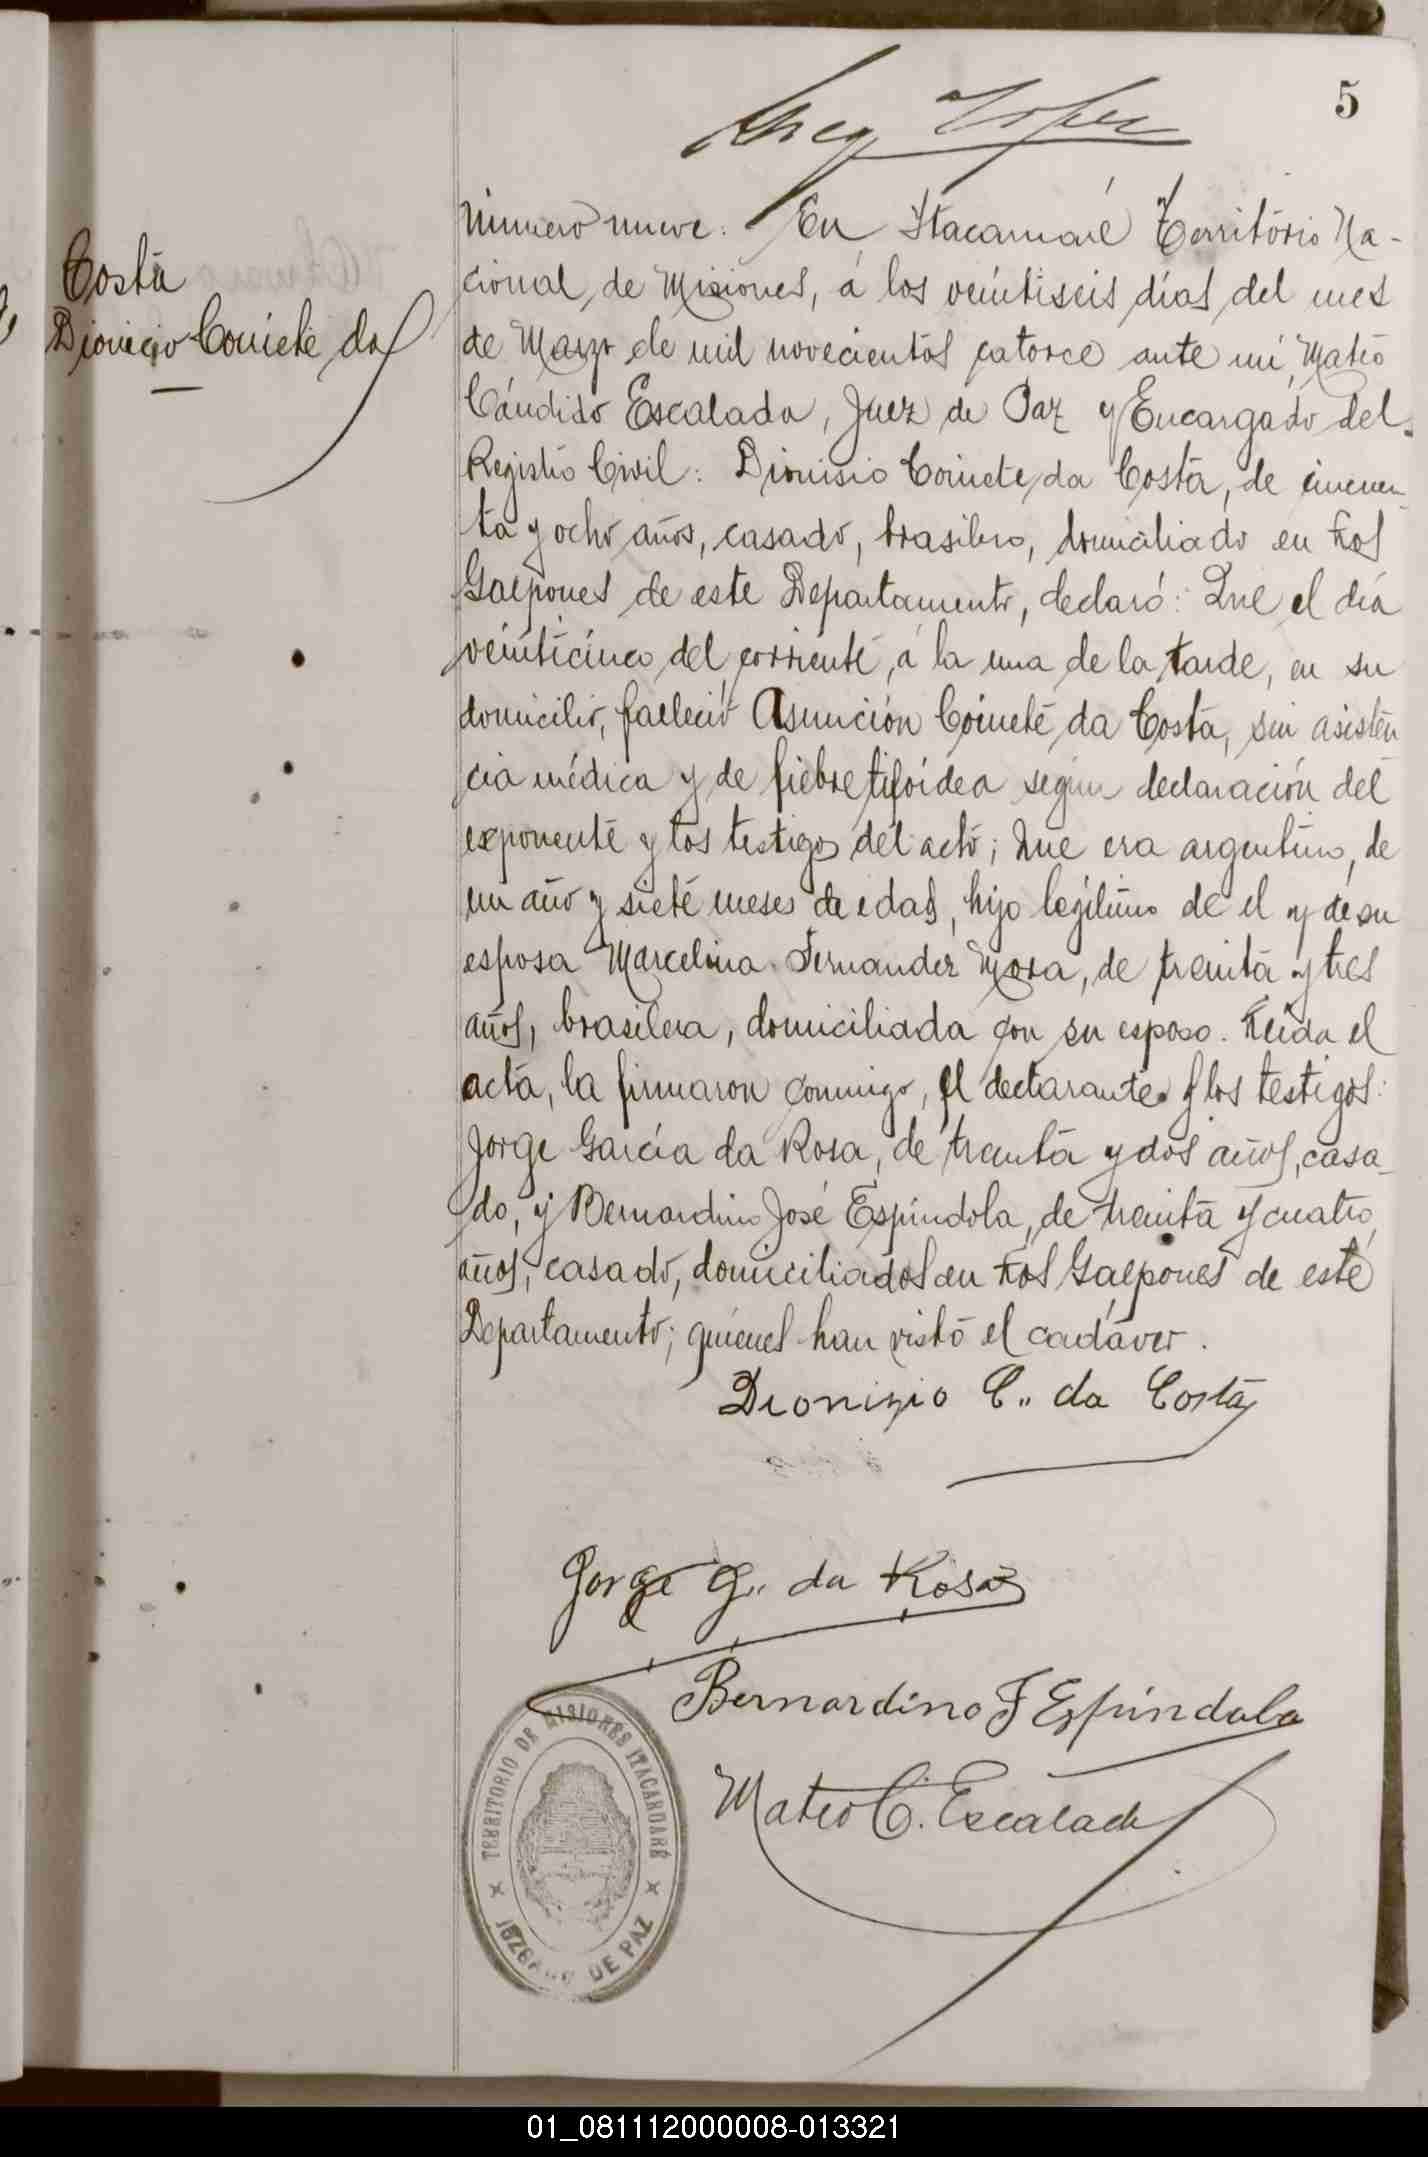 5
Costa
Dionicio Coniete da
Número nueve: En Itacaruaré Territorio Na-
cional de Misiones, á los veintiseis días del mes
de Marzo de mil novecientos catorce ante mí, Mateo
Cándido Escalada, Juez de Paz y Encargado del
Registro Civil: Dionisio Coniete da Costa, de cincuen-
ta y ocho años, casado, brasilero, domiciliado en Los
Galpones de este Departamento, declaró: Que el día
veinticinco del corriente, á la una de la tarde, en su
domicilio, falleció Asunción Coniete da Costa, sin asisten
cia médica y de fiebre tifoidea según declaración del
exponente y los testigos del acto; Que era argentino, de
un año y siete meses de edad, hijo legítimo de el y de su
esposa Marcelina Fernandez Mora, de treinta y tres
años, brasilera, domiciliada con su esposo. Leida el
acta, la firmaron conmigo, el declarante y los testigos:
Jorge García da Rosa, de treinta y dos años, casa-
do, y Bernardino José Espíndola, de treinta y cuatro
años, casado, domiciliados en Los Galpones de este
Departamento; quienes han visto el cadáver.
Dionizio C. da Costa
Jorge G. da Rosa
Bernardino J Espindola
Mateo C. Escalada
TERRITORIO DE MISIONES ITACARUARÉ
JUZGADO DE PAZ
01_081112000008-013321